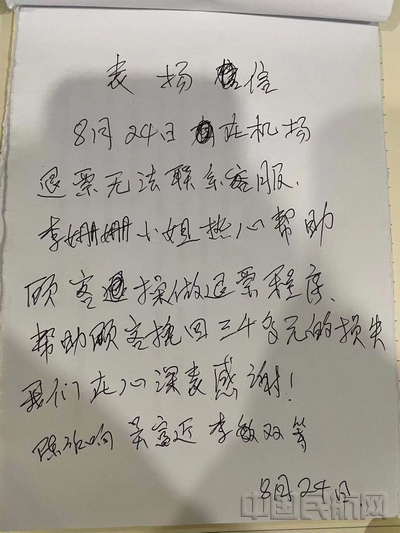 表扬信
8月24日在机场
退票无法联系客服.
李姗姗小姐热心帮助
顾客操做退票程序.
帮助顾客挽回三千多元的损失
我们在心深表感谢!
吴富近 李敏双等
8月24日
中国民航网